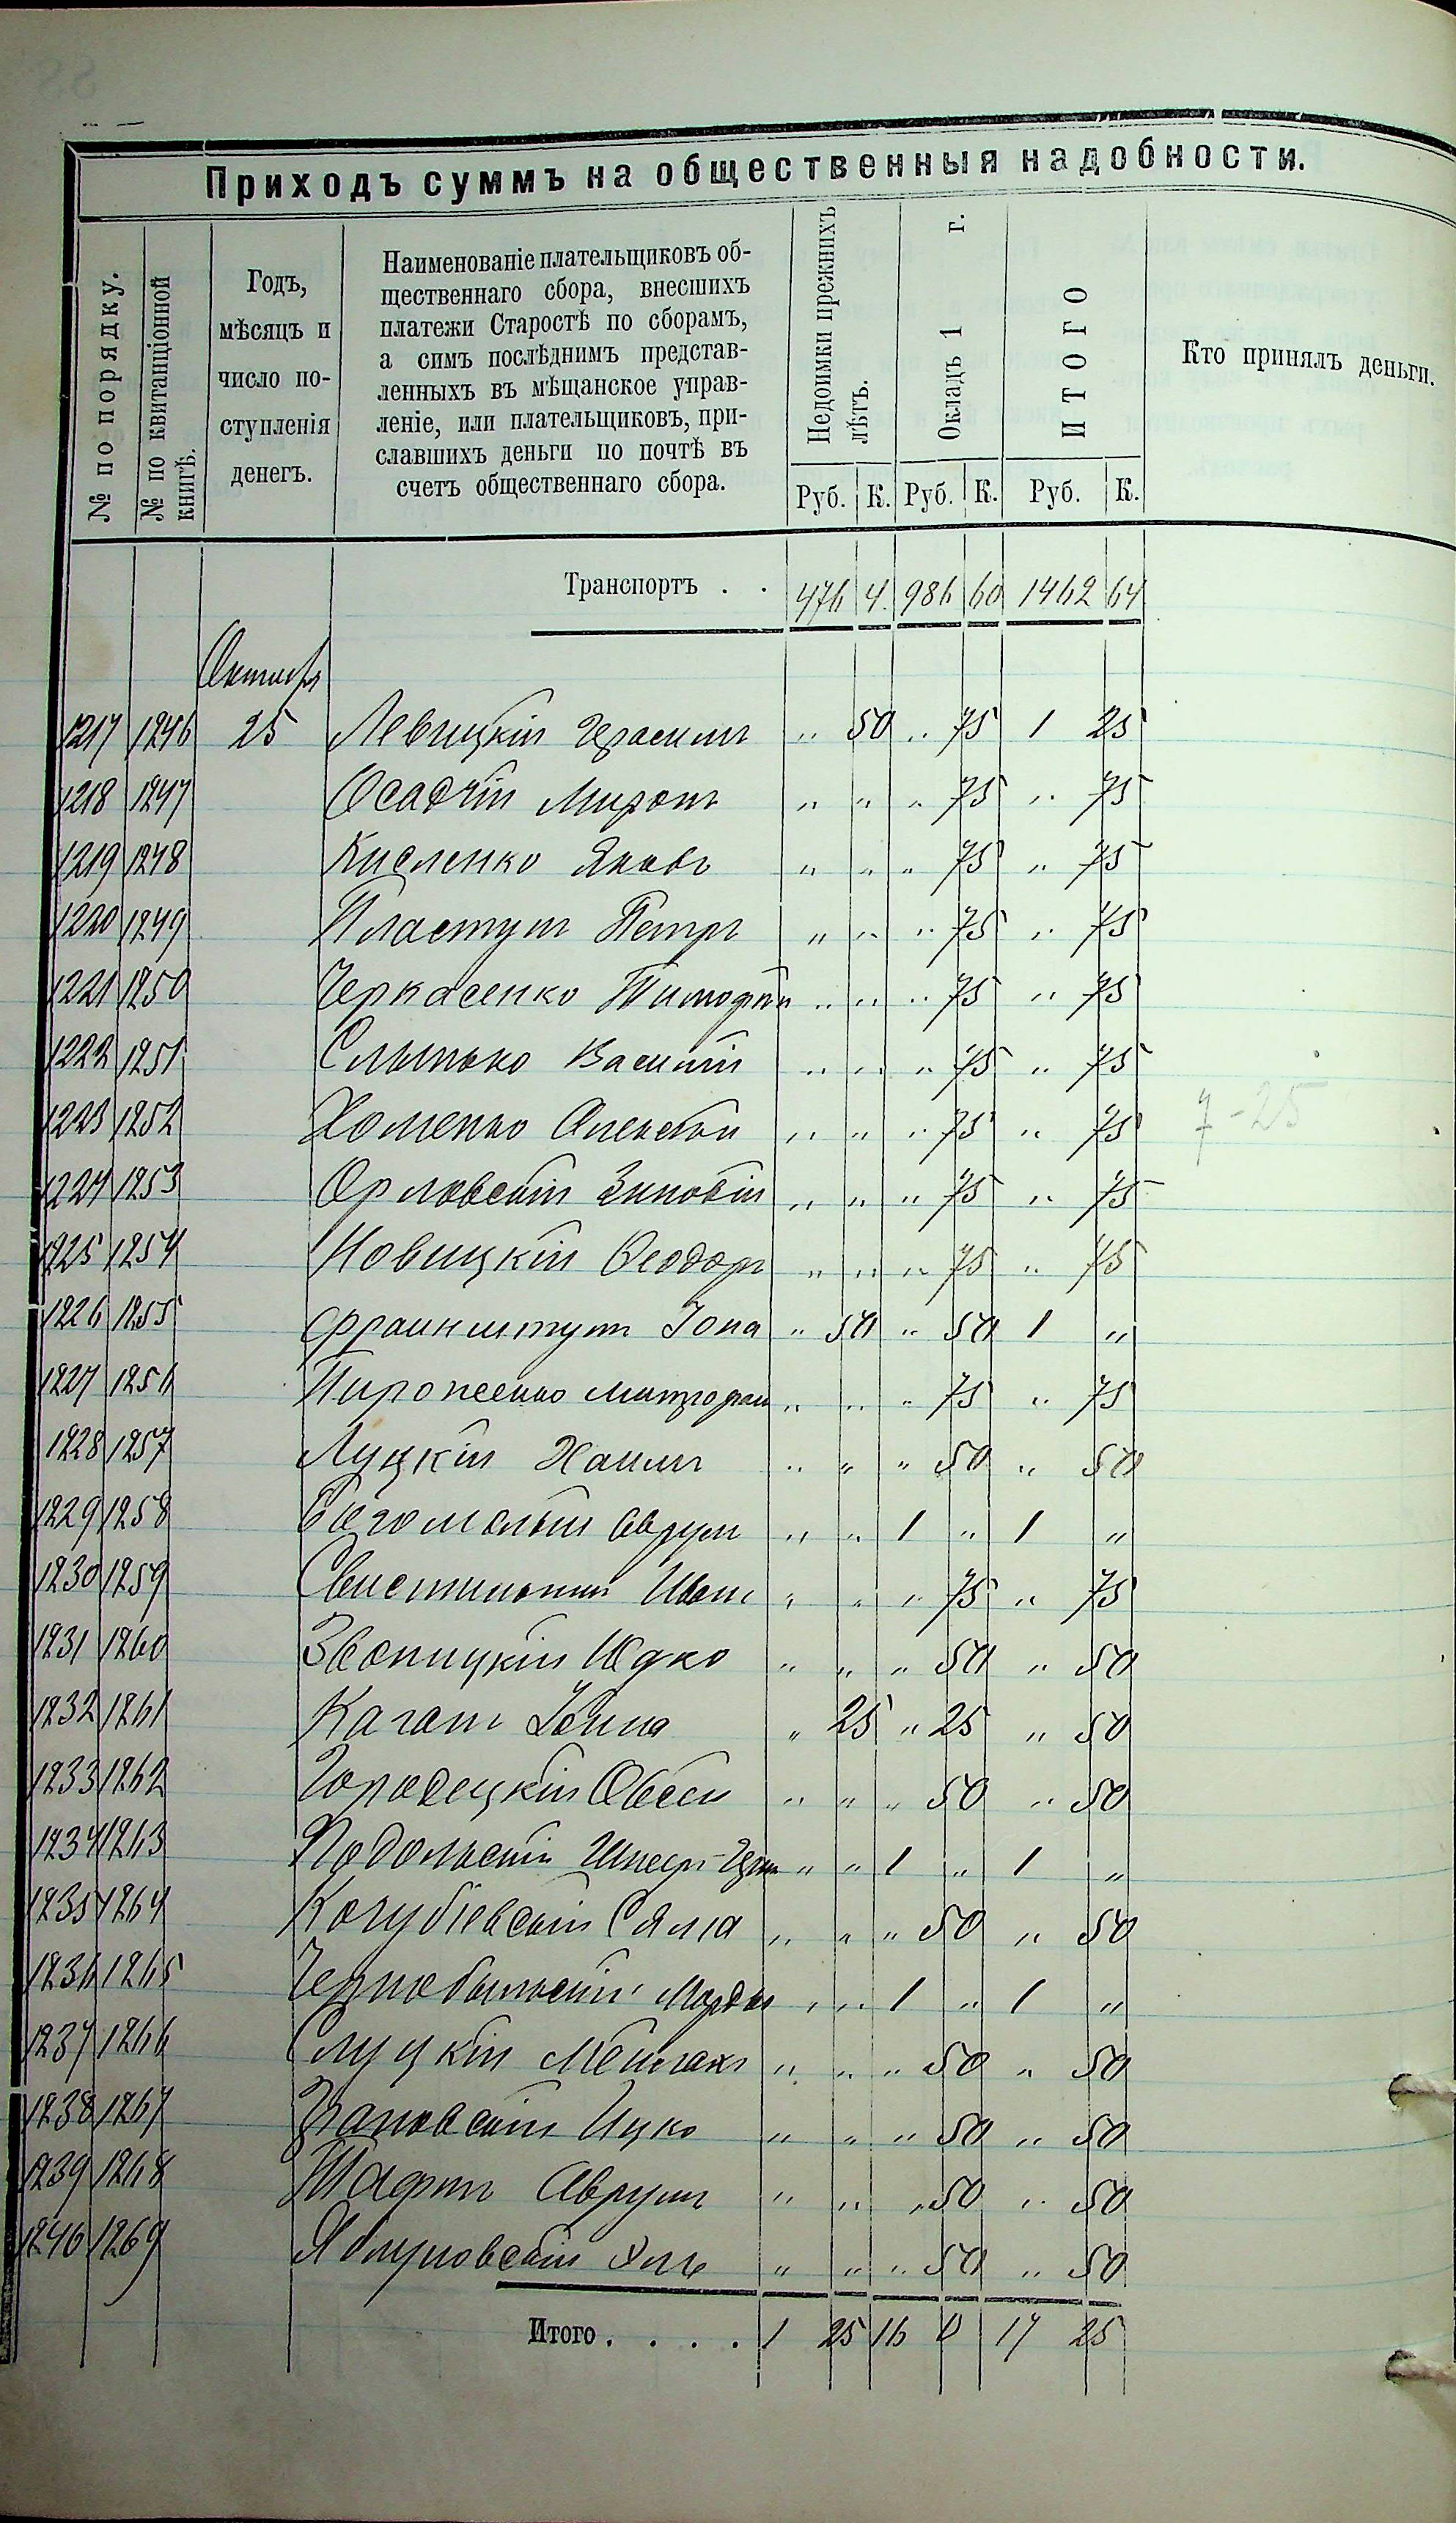 Приходъ суммъ на общественныя надобности.
№ по порядку.
№ по квитанціонной книгѣ.
Годъ,
мѣсяцъ и
число по-
ступленія
денегъ.
Наименованіе плательщиковъ об-
щественнаго сбора, внесшихъ
платежи Старостѣ по сборамъ,
а симъ послѣднимъ представ-
ленныхъ въ мѣщанское управ-
леніе, или плательщиковъ, при-
славшихъ деньги по почтѣ въ
счетъ общественнаго сбора.
Недоимки прежнихъ лѣтъ.
Окладъ 1 г.
ИТОГО
Кто принялъ деньги.
Руб. К. Руб. К. Руб. К.
Транспортъ . . 476 4 986 60 1462 64
Октября
1217 1246 25 Левицкій Герасимъ " 50 " 75 1 25
1218 1247 Осадчій Миронъ " " " 75 " 75
1219 1248 Кисленко Яковъ " " " 75 " 75
1220 1249 Пластунъ Петръ " " " 75 " 75
1221 1250 Черкасенко Тимофѣй " " " 75 " 75
1222 1251 Василій " " " 75 " 75
1223 1252 Хоменко Алексѣй " " " 75 " 75
7-25
1224 1253 Орловскій Зиновій " " " 75 " 75
1225 1254 Новицкій Феодоръ " " " 75 " 75
1226 1255 Іона " 50 " 50 1 "
1227 1256 Пироженко Митрофан " " " 75 " 75
1228 1257 Луцкій Хаимъ " " " 50 " 50
1229 1258 Богомольный Аврум " " 1 " 1 "
1230 1259 Иванъ " " " 75 " 75
1231 1260 Звоницкій Юдко " " " 50 " 50
1232 1261 Каганъ " 25 " 25 " 50
1233 1262 Городецкій Овсей " " " 50 " 50
1234 1263 Подольскій " " 1 " 1 "
1235 1264 Кочубіевскій " " " 50 " 50
1236 1265 Чернобыльскій Мордко " " 1 " 1 "
1237 1266 Слуцкій " " " 50 " 50
1238 1267 Ицко " " " 50 " 50
1239 1268 Аврумъ " " " 50 " 50
1240 1269 Яблуновскій " " " 50 " 50
Итого . . . . 1 25 16 0 17 25